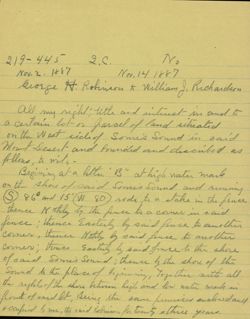 219-445 Q.C. No
Nov. 2. 1887 Nov. 14 1887
George H. Robinson to William J. Richardson
All my right title and interest in and to
a certain lot or parcel of land situated
on the West side of Somes Sound in said
Mount Desert and bounded and described as
follows, to wit:-
Beginning at a letter "B" at high water mark
on the shore of said Somes Sound and running
(S) 86° and 15' (W 80) rods, to a stake in the fence
thence Northerly by the fence to a corner in said
fence; thence Easterly by said fence to another
corner; thence Northerly by said fence to another
corner; thence Easterly by said fence to the shore
of said Somes Sound; thence by the shore of the
Sound to the place of beginning, Together with all
the rights of the shore between high and low water mark in
front of said lot, Being the same premises
occupied by me, the said Robinson, for twenty three years